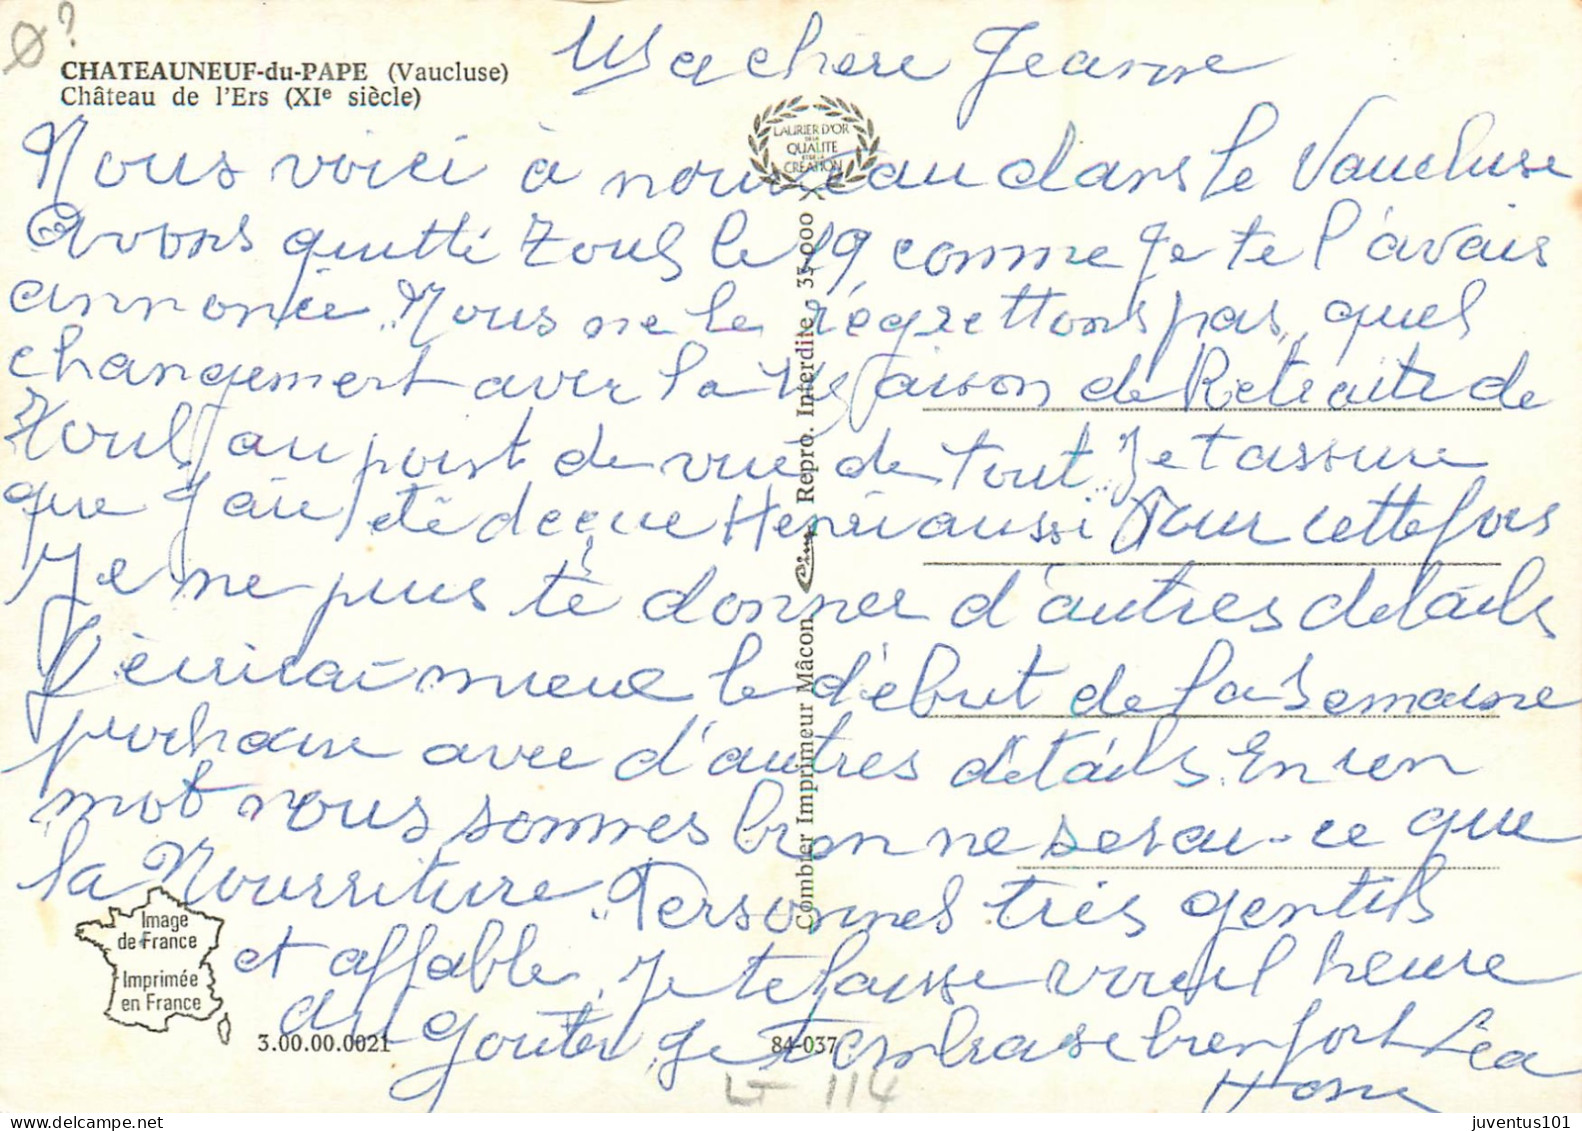 ø?
CHATEAUNEUF-du-PAPE (Vaucluse)
Château de l'Ers (XIe siècle)
LAURIER D'OR
DE LA
QUALITE
ET DE LA
CREATION
Ma chère Jeanne
Nous voici à nouveau dans le Vaucluse
avons quitté Toul le 19 comme je te l'avais
annoncée. Nous ne le régrettons pas, quel
changement avec la Maison de Retraite de
Toul, au point de vue de tout. Je t assure
que j'ai été deçue Henri aussi Pour cette fois
Je ne puis te donner d'autres détails
J'écrirai mieux le début de la Semaine
prochaine avec d'autres détails. En un
mot nous sommes bien ne serai-ce que
la Nourriture. Personnes très gentils
et affable. Je te laisse voici l heure
du gouter je t embrasse bien fort Léa
Combier Imprimeur Mâcon Cim Repro. Interdite 35-000
Image
de France
Imprimée
en France
3.00.00.0021
84-037
114
juventus101